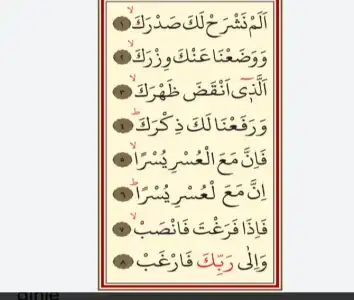 اَلَمْ نَشْرَحْ لَكَ صَدْرَكَ ۙ ﴿١﴾
وَوَضَعْنَا عَنْكَ وِزْرَكَ ۙ ﴿٢﴾
اَلَّذ۪ٓى اَنْقَضَ ظَهْرَكَ ۙ ﴿٣﴾
وَرَفَعْنَا لَكَ ذِكْرَكَ ۜ ﴿٤﴾
فَاِنَّ مَعَ الْعُسْرِ يُسْرًا ۙ ﴿٥﴾
اِنَّ مَعَ لْعُسْرِ يُسْرًا ۜ ﴿٦﴾
فَاِذَا فَرَغْتَ فَانْصَبْ ۙ ﴿٧﴾
وَاِلٰى رَبِّكَ فَارْغَبْ ﴿٨﴾